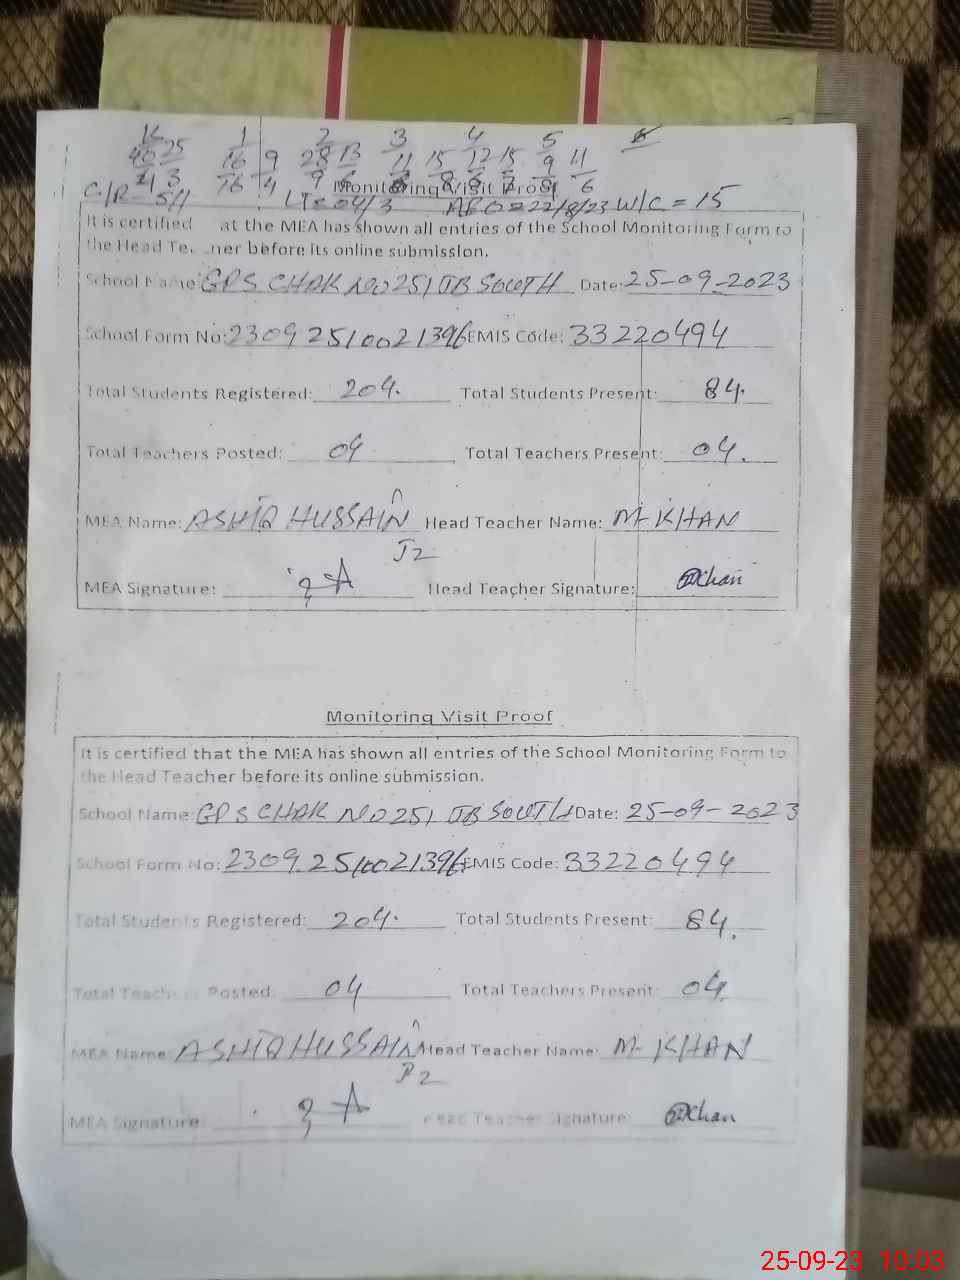 1 2 3 4 5
16 9 28 13 11 15 12 15 9 11
16 4 9 6
C/R - 5/1 W/C = 15
Monitoring Visit Proof
It is certified at the MEA has shown all entries of the School Monitoring Form to
the Head Te. .ner before its online submission.
School Name: GPS CHAK NO 251 JB SOUTH Date: 25-09-2023
School Form No: 23092510021396 EMIS Code: 33220494
Total Students Registered: 204. Total Students Present: 84.
Total Teachers Posted: 04 Total Teachers Present: 04.
MEA Name: ASHIQ HUSSAIN Head Teacher Name: M KHAN
MEA Signature: Head Teacher Signature: Khan
Monitoring Visit Proof
It is certified that the MEA has shown all entries of the School Monitoring Form to
the Head Teacher before its online submission.
School Name: GPS CHAK NO 251 JB SOUTH Date: 25-09-2023
School Form No: 23092510021396 EMIS Code: 33220494
Total Students Registered: 204. Total Students Present: 84.
Total Teachers Posted: 04 Total Teachers Present: 04.
MEA Name: ASHIQ HUSSAIN Head Teacher Name: M KHAN
MEA Signature: Head Teacher Signature: Khan
25-09-23 10:03